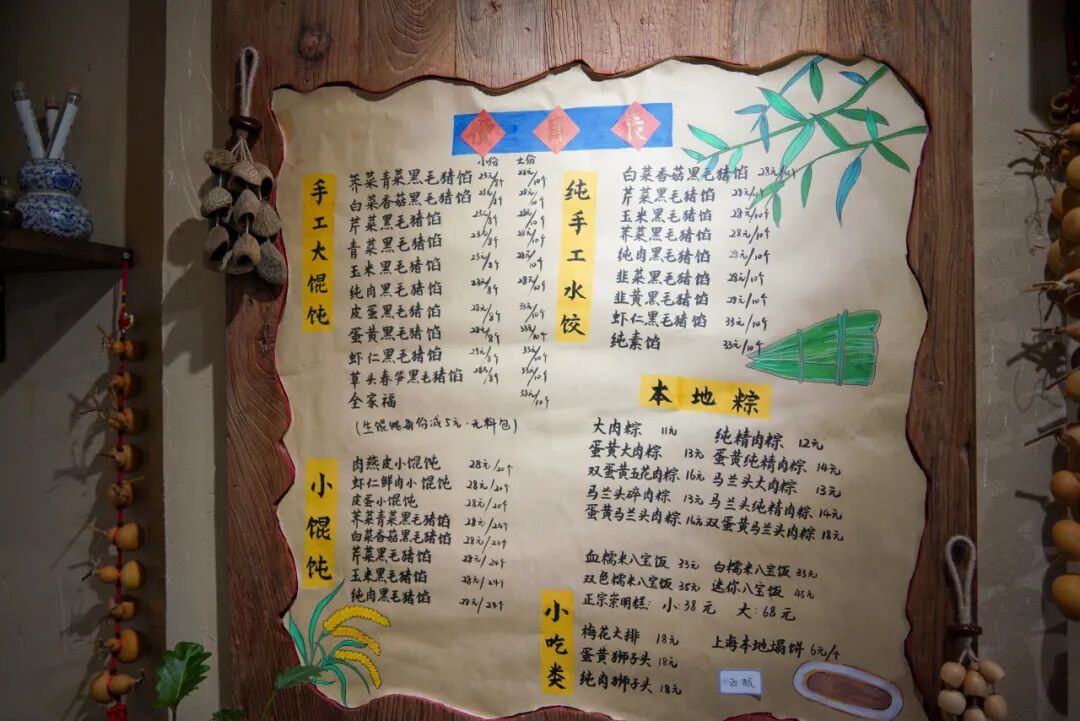 價目表
手工大馄饨
小份 大份
荠菜青菜黑毛猪馅 23元/8个 28元/10个
白菜香菇黑毛猪馅 23元/8个 28元/10个
芹菜黑毛猪馅 23元/8个 28元/10个
青菜黑毛猪馅 23元/8个 28元/10个
玉米黑毛猪馅 23元/8个 28元/10个
纯肉黑毛猪馅 23元/8个 28元/10个
皮蛋黑毛猪馅 28元/8个 33元/10个
蛋黄黑毛猪馅 28元/8个 33元/10个
虾仁黑毛猪馅 28元/8个 33元/10个
草头春笋黑毛猪馅 28元/8个 33元/10个
全家福 33元/10个
(生馄饨每份减5元·无料包)
小馄饨
肉燕皮小馄饨 28元/20个
虾仁鲜肉小馄饨 28元/20个
皮蛋小馄饨 28元/20个
荠菜青菜黑毛猪馅 28元/24个
白菜香菇黑毛猪馅 28元/24个
芹菜黑毛猪馅 28元/24个
玉米黑毛猪馅 28元/24个
纯肉黑毛猪馅 28元/24个
纯手工水饺
白菜香菇黑毛猪馅 28元/10个
芹菜黑毛猪馅 28元/10个
玉米黑毛猪馅 28元/10个
荠菜黑毛猪馅 28元/10个
纯肉黑毛猪馅 28元/10个
韭菜黑毛猪馅 28元/10个
韭黄黑毛猪馅 28元/10个
虾仁黑毛猪馅 33元/10个
纯素馅 33元/10个
本地粽
大肉粽 11元 纯精肉粽 12元
蛋黄大肉粽 13元 蛋黄纯精肉粽 14元
双蛋黄五花肉粽 16元 马兰头大肉粽 13元
马兰头碎肉粽 13元 马兰头纯精肉粽 14元
蛋黄马兰头肉粽 16元 双蛋黄马兰头肉粽 18元
血糯米八宝饭 33元 白糯米八宝饭 33元
双色糯米八宝饭 35元 迷你八宝饭 45元
正宗崇明糕: 小:38元 大:68元
小吃类
梅花大排 18元 上海本地塌饼 6元/个
蛋黄狮子头 18元
纯肉狮子头 18元